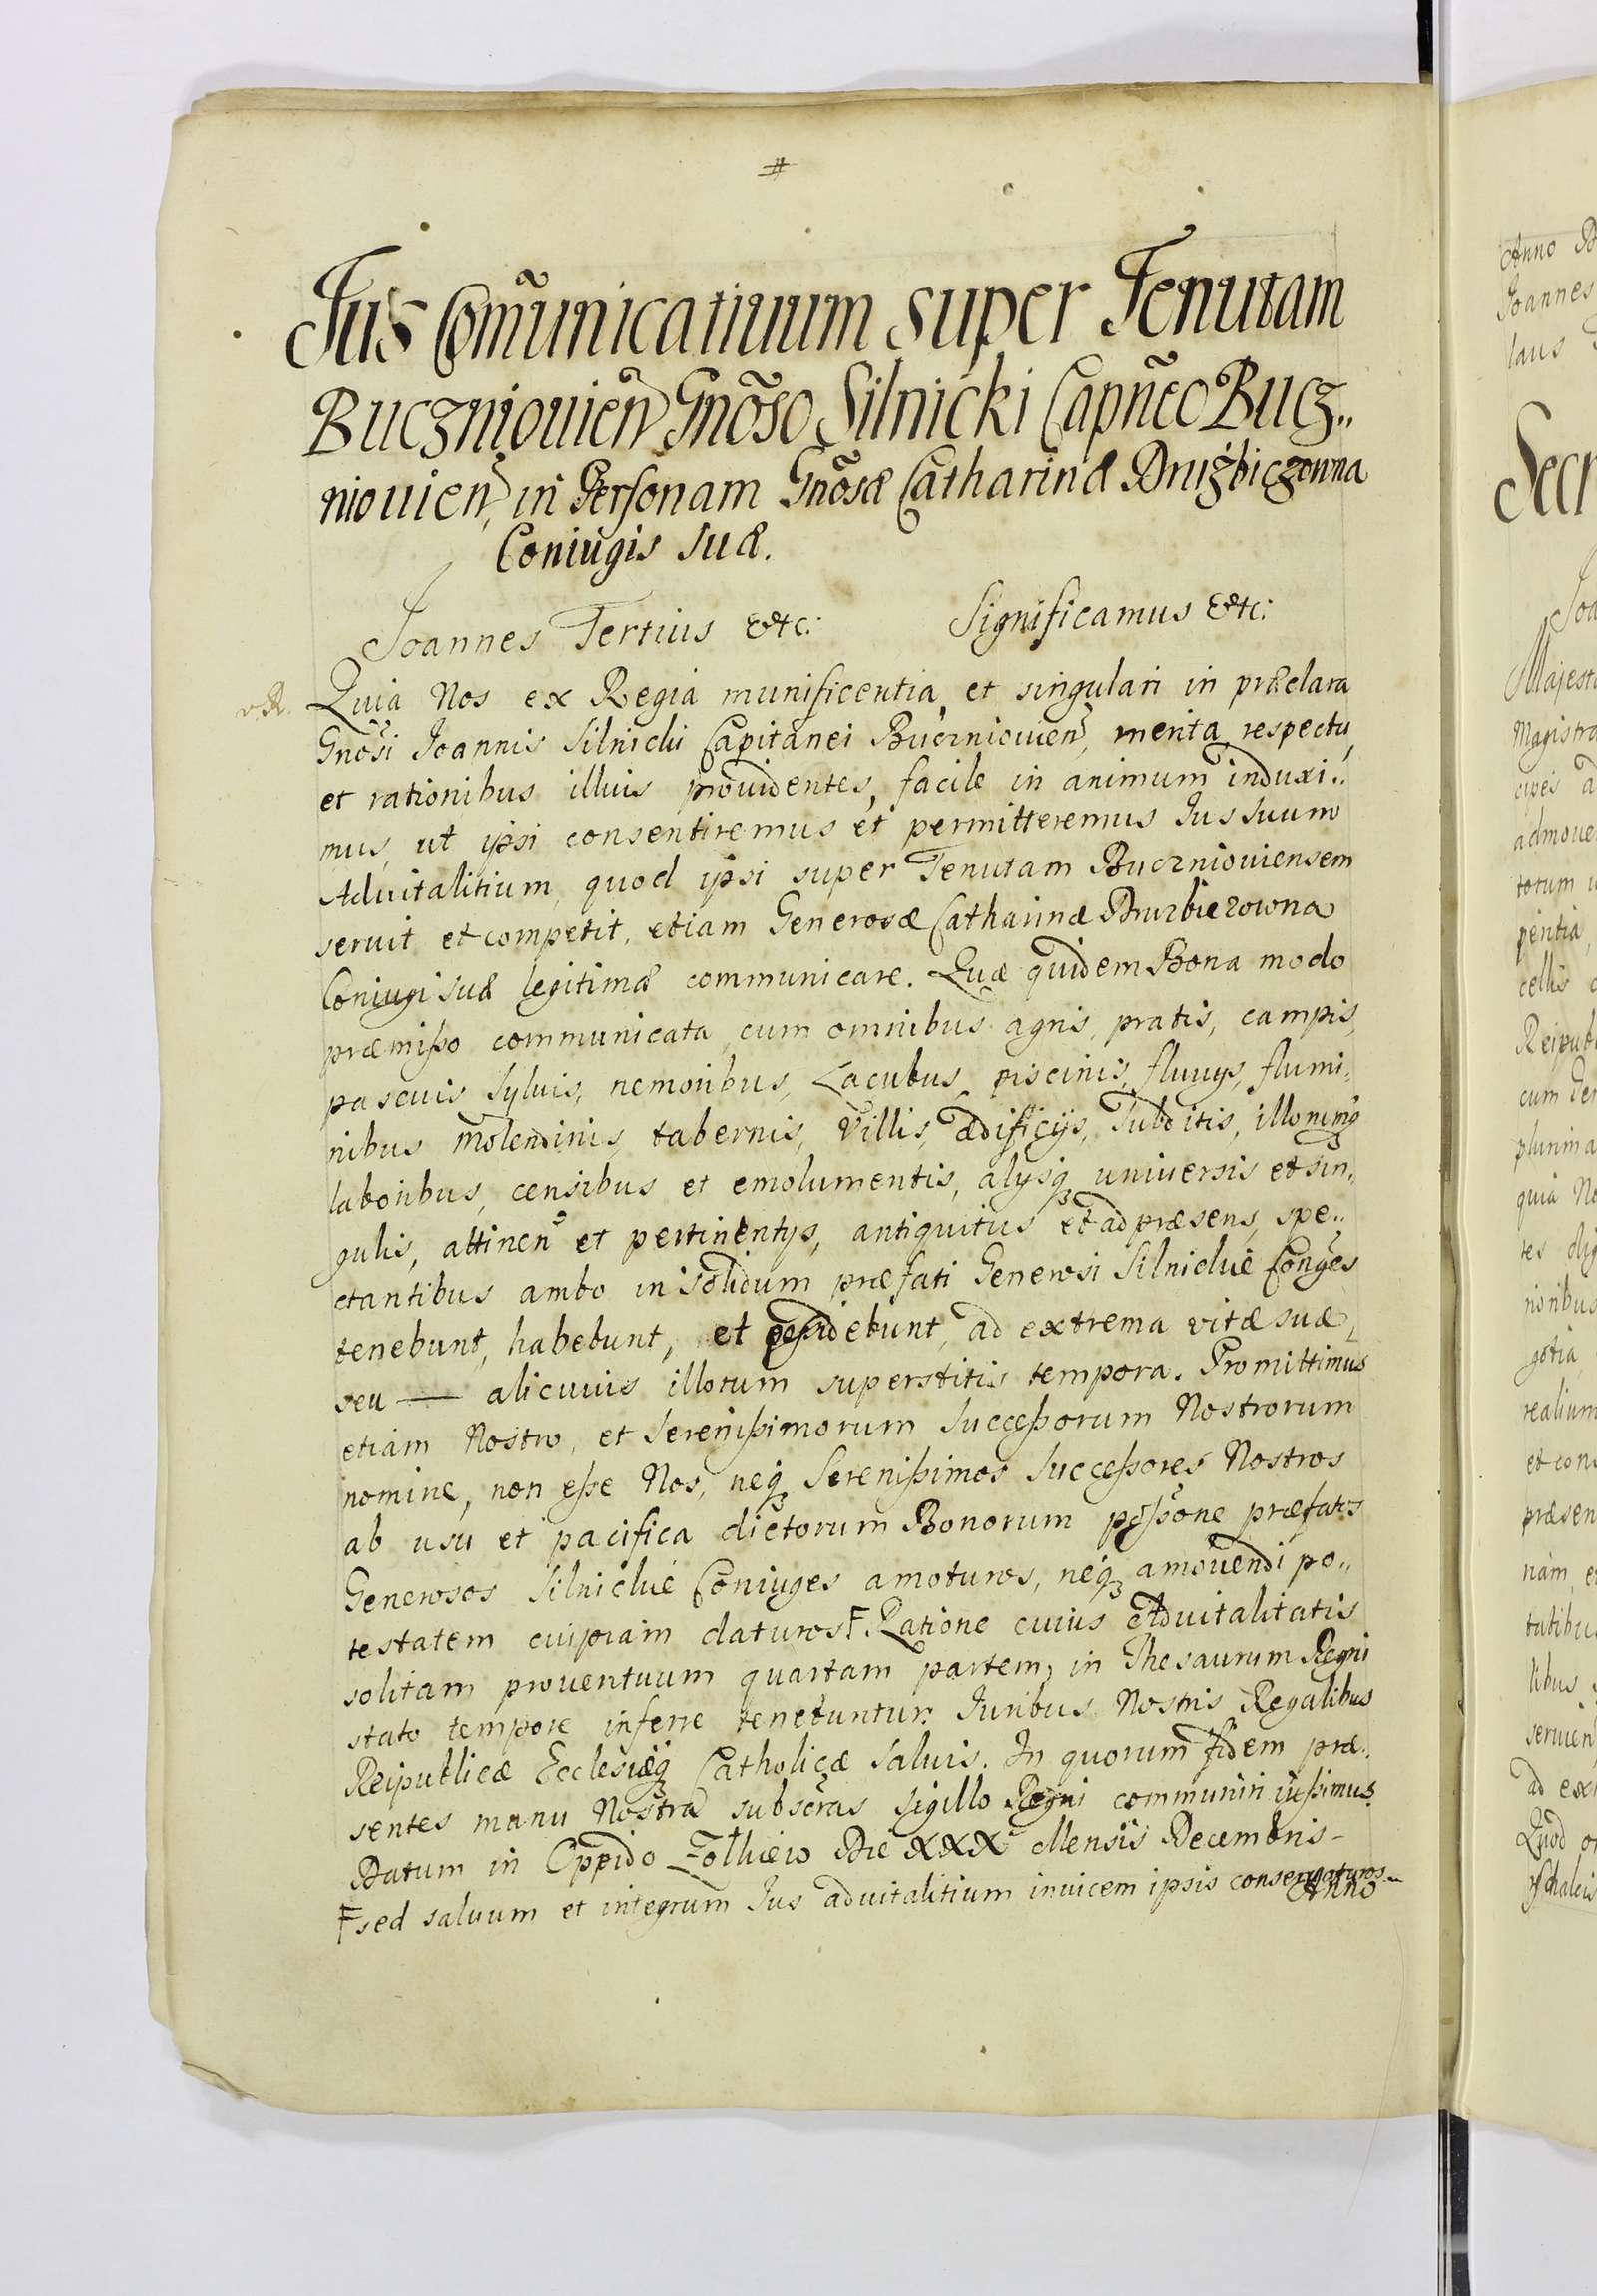 #
Jus Com̃unicatiuum super Tenutam
Buczniouien̾ Gnõso Silnicki Capñeo Bucz„
niouien̾, in Personam Gnõsæ Catharinæ Drużbiczowna
Coniugis suæ.
Joannes Tertius &tc: Significamus &tc:
Quia Nos ex Regia munificentia, et singulari in præclara
Gnõsi Joannis Silnicki Capitanei Buczniouien̾, merita respectu,
et rationibus illius prouidentes, facile in animum induxi„
mus, ut ipsi consentiremus et permitteremus Jus suum
Aduitalitium, quod ipsi super Tenutam Buczniouiensem
seruit et competit, etiam Generosæ Catharinæ Druzbiezowna
Coniugi suæ legitimæ communicare. Quæ quidem Bona modo
præmißo communicata, cum omnibus agris, pratis, campis,
pascuis Syluis, nemoribus, Lacubus, piscinis, fluuijs, flumi„
nibus molendinis, tabernis, Villis, ædificijs, Subditis, illorumq̃
laboribus, censibus et emolumentis, alijsq; uniuersis et sin„
gulis, attinen̾ et pertinentijs, antiquitus et ad præsens, spe„
ctantibus ambo in solidum præfati Generosi Silnickie Conges
tenebunt, habebunt, et poßidebunt, ad extrema vitæ suæ,
seu — alicuius illorum superstitis tempora. Promittimus
etiam Nostro, et Serenißimorum Succeßorum Nostrorum
nomine, non eße Nos, neq; Serenißimos Succeßores Nostros
ab usu et pacifica dictorum Bonorum poßone præfatos
Generosos Silnickie Coniuges amoturos, neq; amouendi po„
testatem cuipiam daturos F. Ratione cuius Aduitalitatis
solitam prouentuum quartam partem, in Thesaurum Regni
stato tempore inferre tenebuntur. Juribus Nostris Regalibus
Reipublicæ Ecclesiæq; Catholicæ saluis. In quorum fidem præ„
sentes manu Nostra subscras Sigillo Regni communiri iußimus.
Datum in Oppido Zołkiew Die XXX Mensis Decembris –
F sed saluum et integrum Jus aduitalitium inuicem ipsis conseruaturos.
Anno